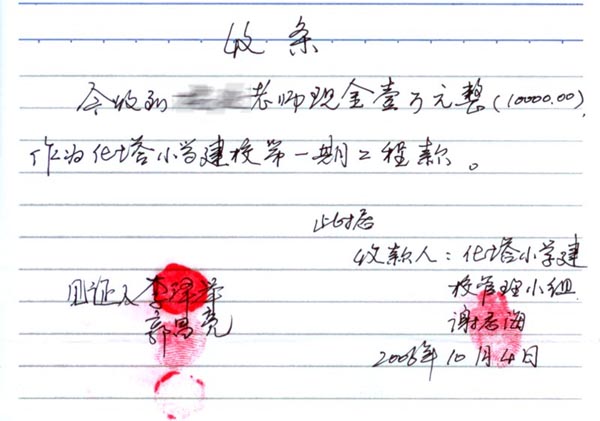 收条
今收到 老师现金壹万元整(10000.00),
作为化塔小学建校第一期工程款。
此据
收款人:化塔小学建
校管理小组
谢志海
证人 李泽
郭昌亮
2006年10月4日